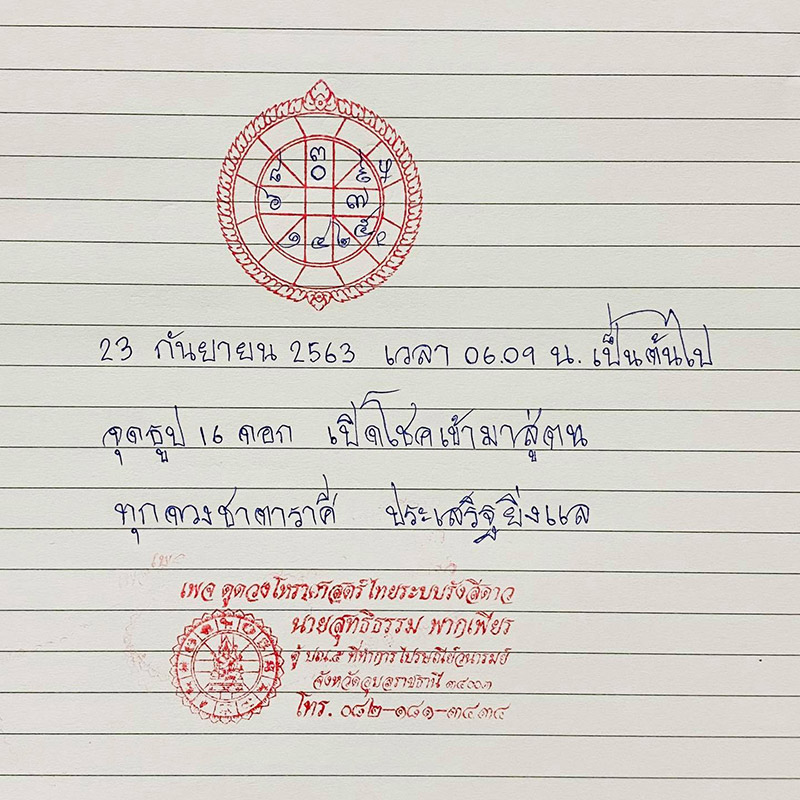 ๓
๘ ๐
๖ ๗
๑ ๔ ๒ ๕ ๙
23 กันยายน 2563 เวลา 06.09 น. เป็นต้นไป
จุดธูป 16 ดอก เปิดโชคเข้ามาสู่ตน
ทุกดวงชาตาราศี ประเสริฐยิ่งแล
เพจ ดูดวงโหราศาสตร์ไทยระบบรังสีดาว
นายสุทธิธรรม พากเพียร
ตู้ ปณ.๕ ที่ทำการไปรษณีย์วนารมย์
จังหวัดอุบลราชธานี ๓๔๐๐๓
โทร. ๐๘๒-๑๘๑-๓๔๓๔